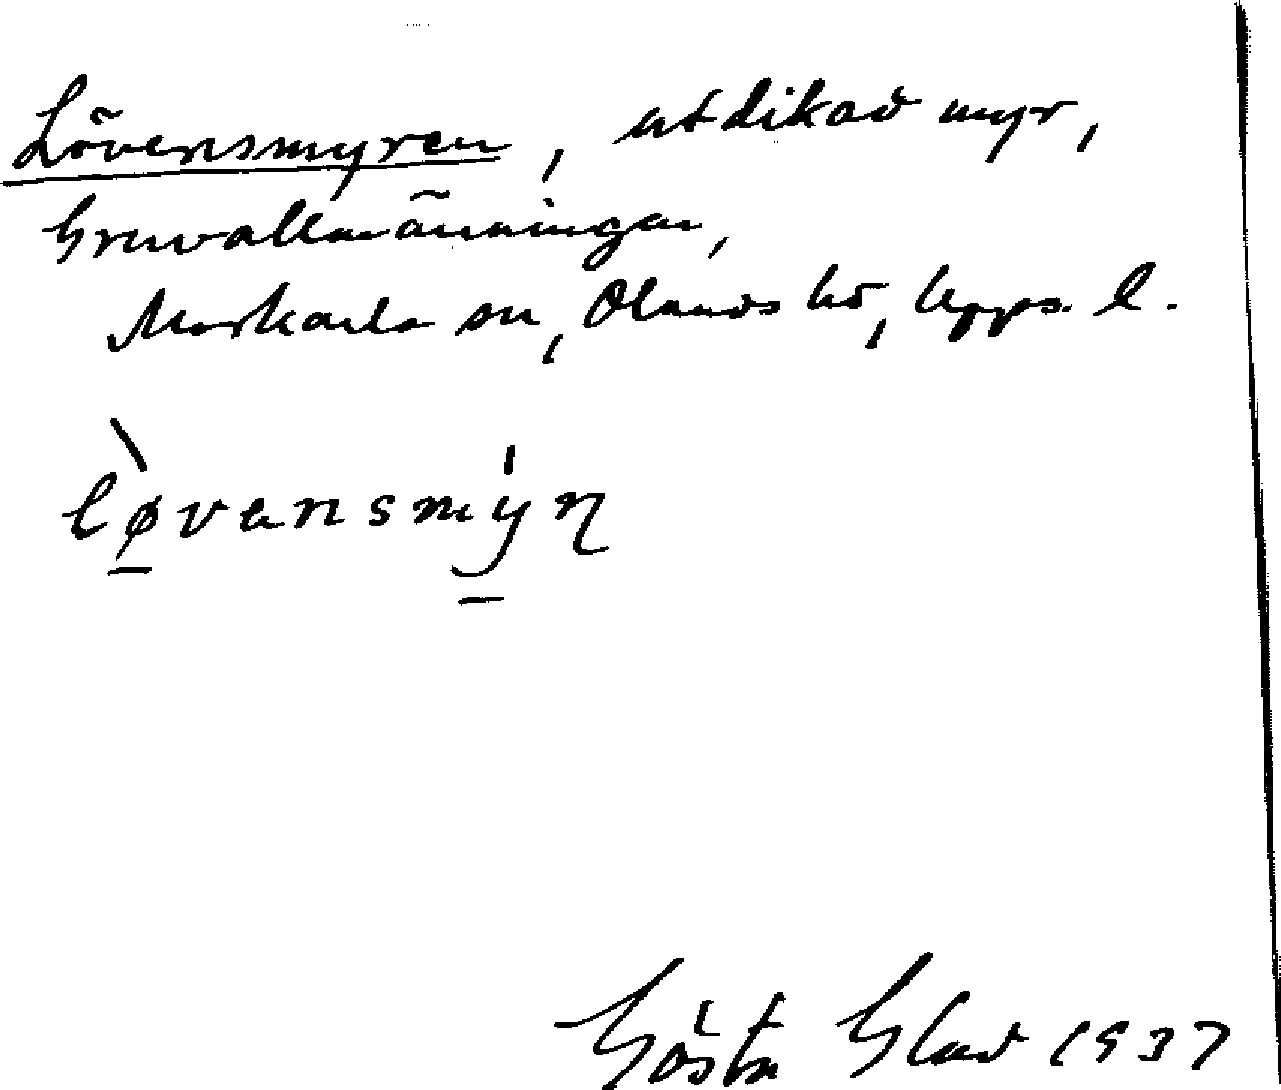 Lövensmyren, utdikad myr,
Gruvallmänningen,
Morkarla sn, Olands hd, Upps. l.
lø̀vensmýn
Gösta Glad 1937